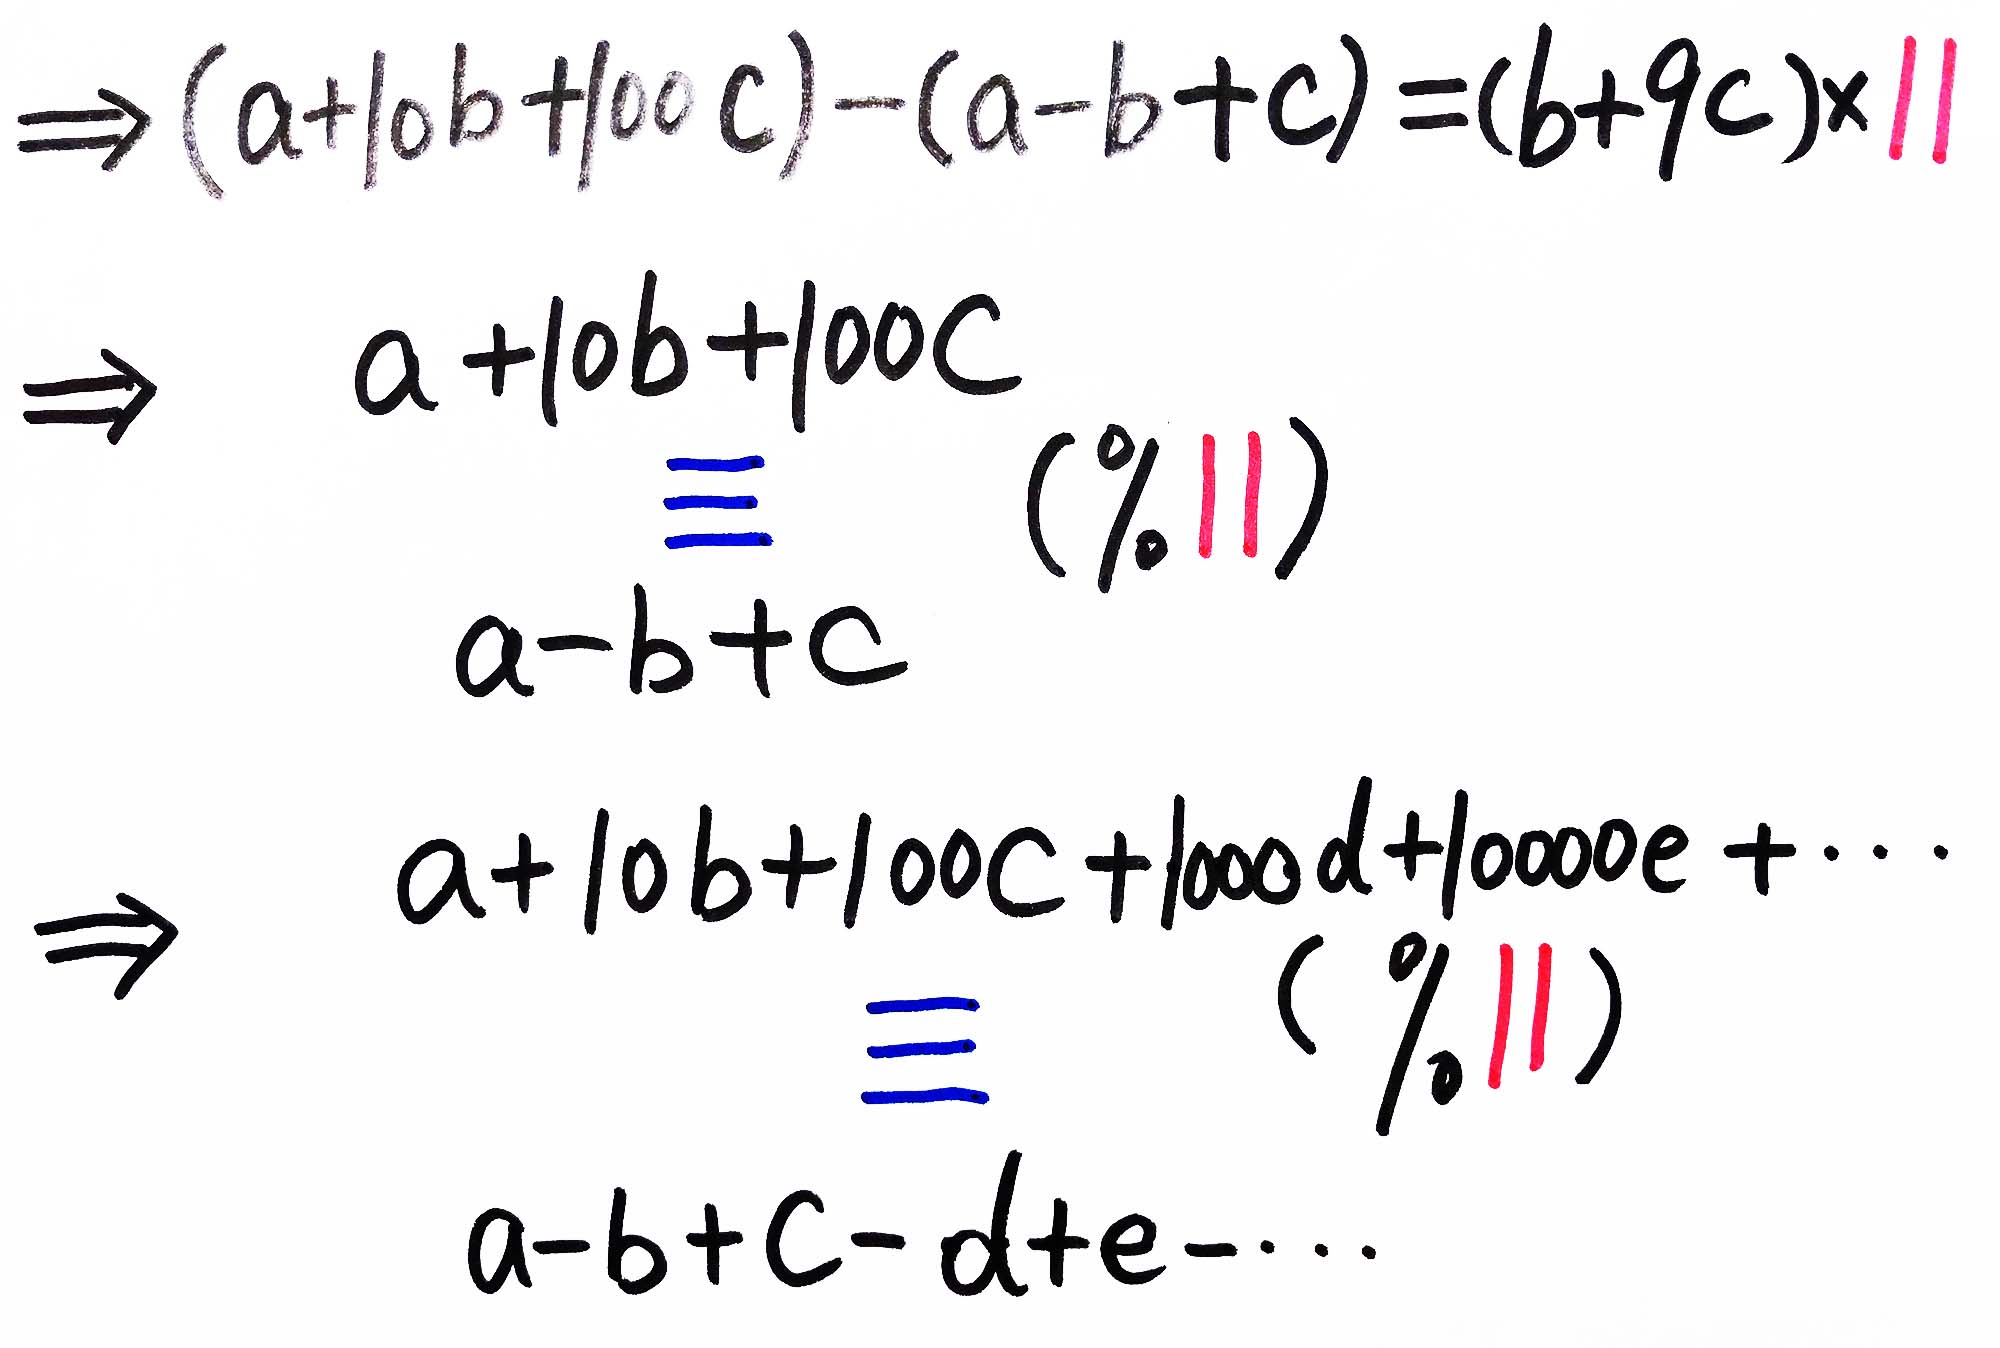 ⇒(a+10b+100c)-(a-b+c)=(b+9c)×11
⇒ a+10b+100c
≡ (%11)
a-b+c
⇒ a+10b+100c+1000d+10000e+···
≡ (%11)
a-b+c-d+e-····